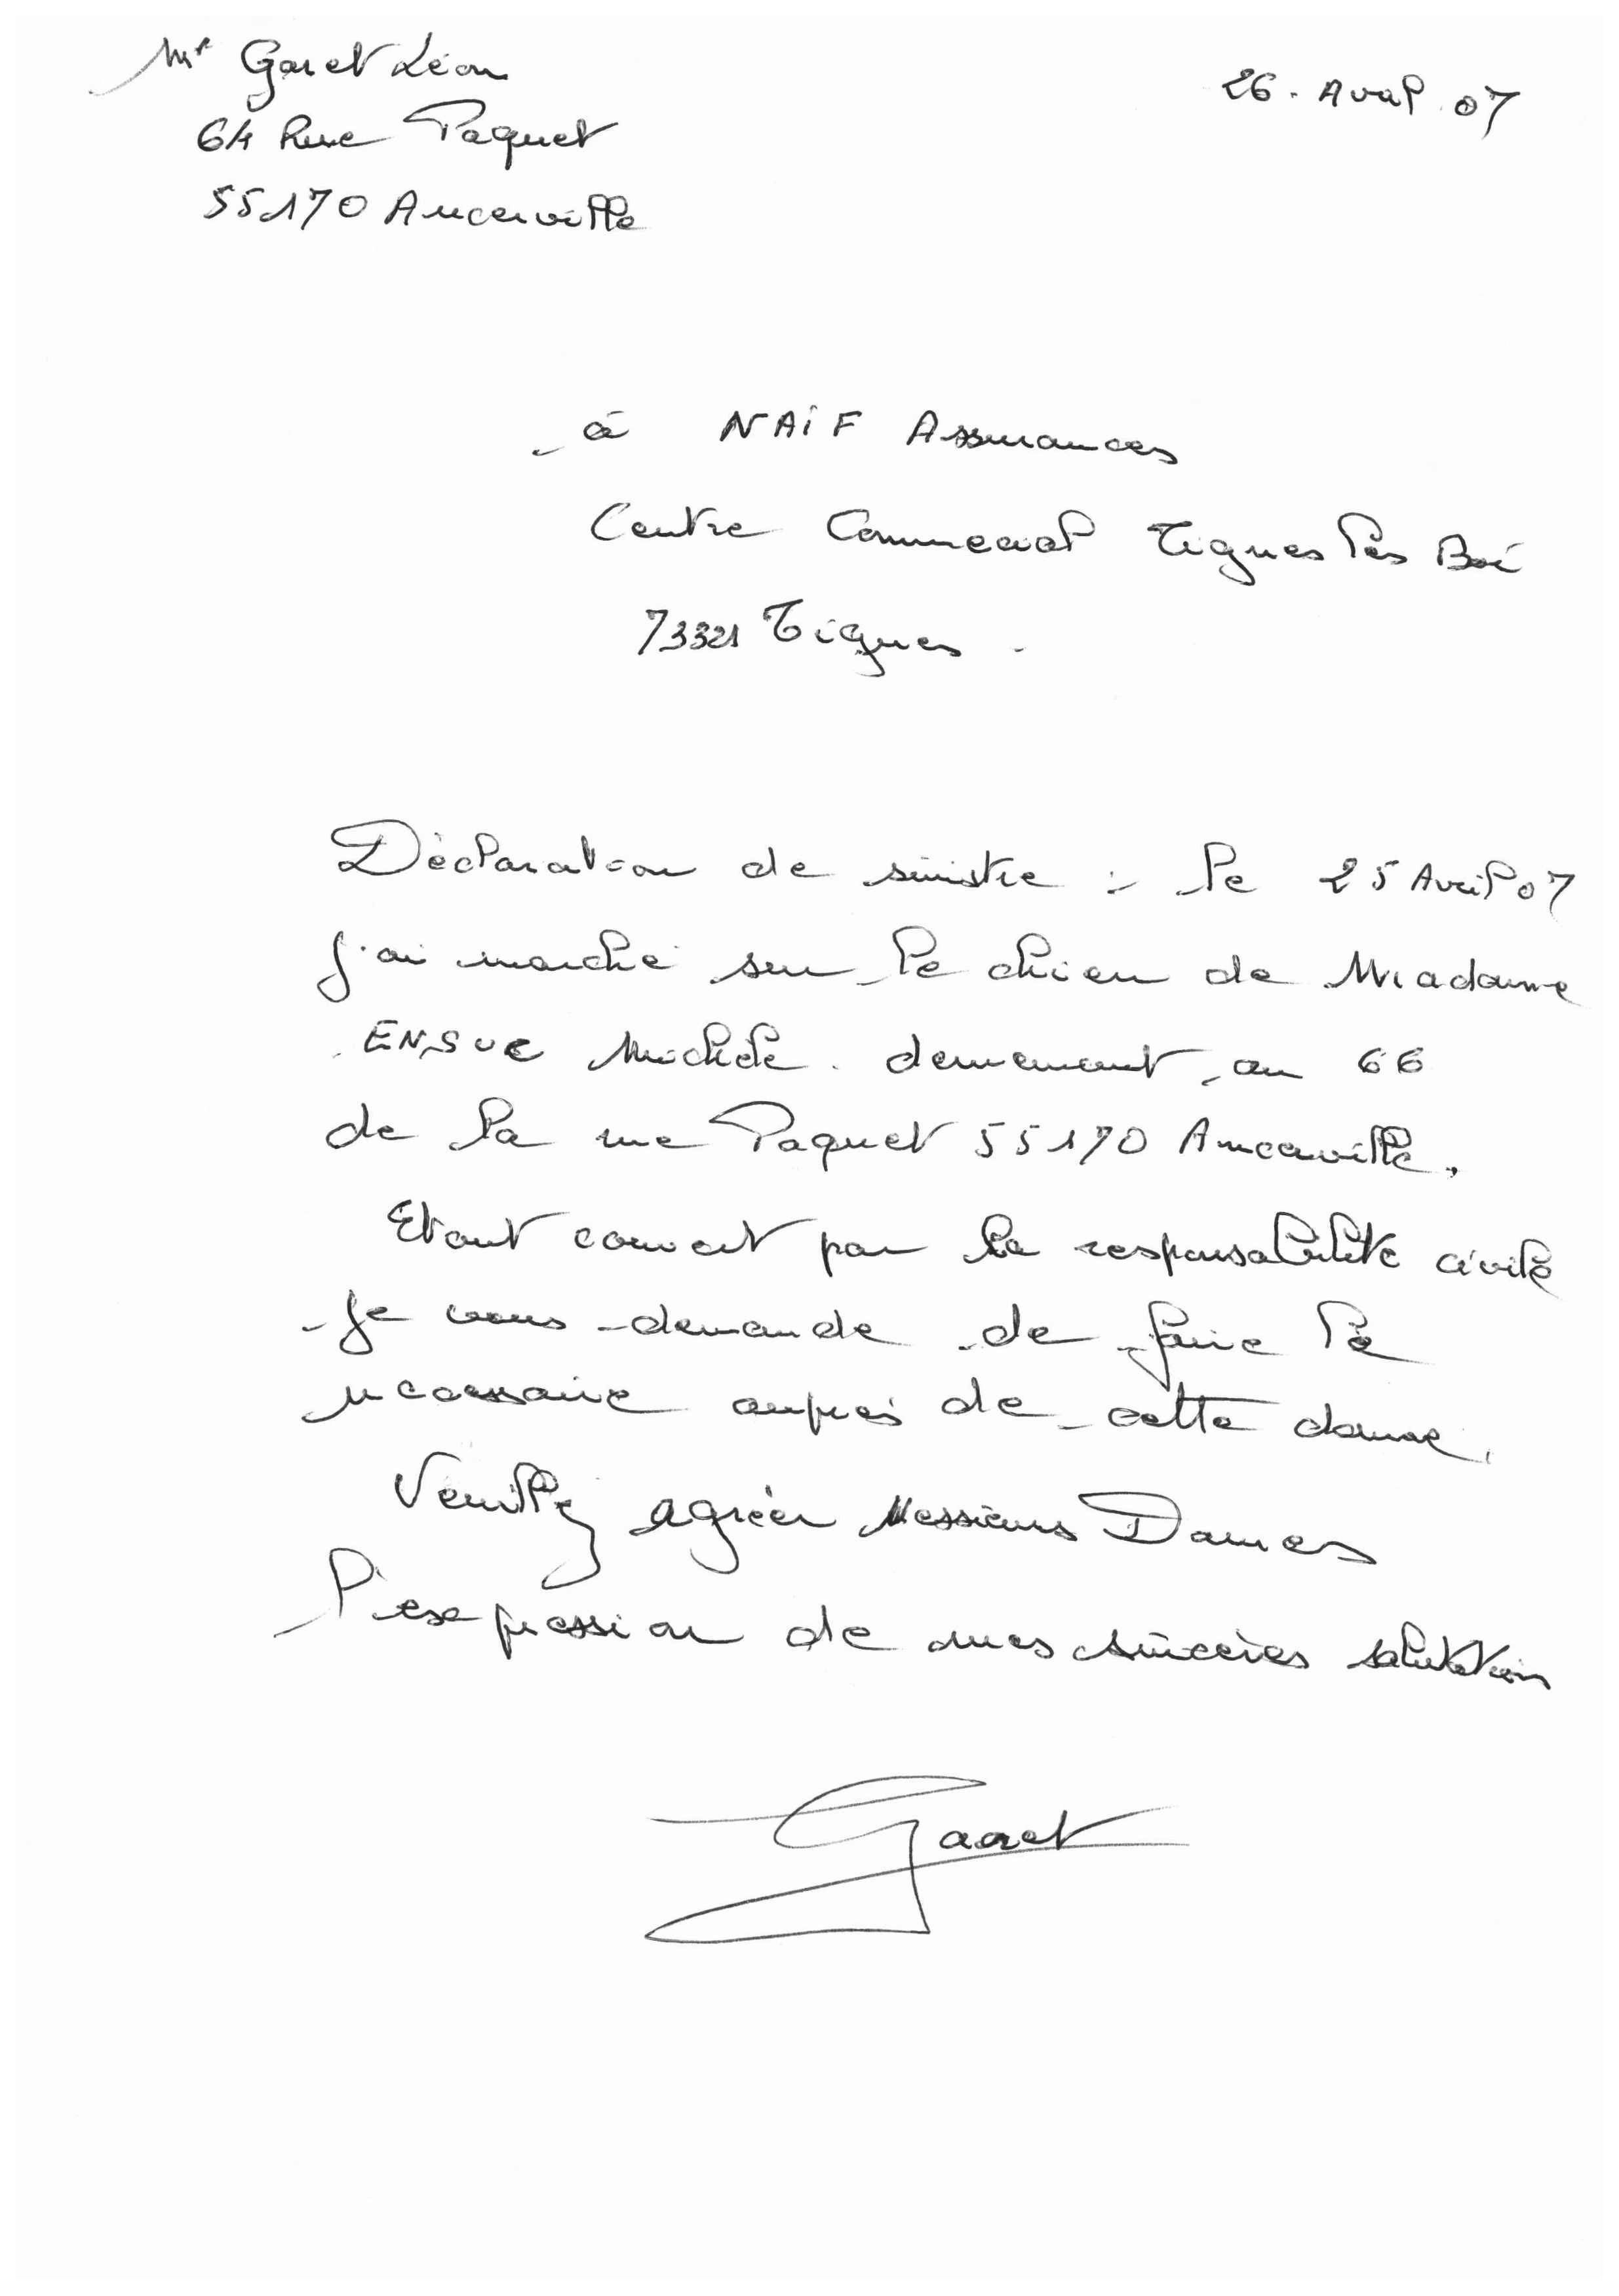 Mr Garet Léon
26. Avril 07
64 Rue Paquet
55170 Ancerville
à NAiF Assurances
Centre Commercial Tignes les Boi
73321 Tignes.
Déclaration de sinistre : le 25 Avril 07
j'ai marché sur le chien de Madame
ENSUE Michèle. demeurant au 66
de la rue Paquet 55170 Ancerville.
Etant couvert par la responsabilité civile
je vous demande de faire le
necessaire auprès de cette dame.
Veuillez agréer Messieurs Dames
l'expression de mes sincères salutations
Garet